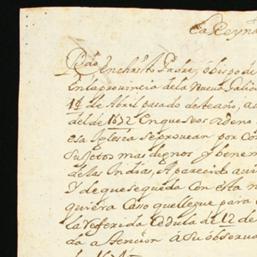 La Reyna
Rdo. en christo Padre, obispo de
En la provincia de la Nueva Galicia
12 de Abril pasado de este año, a
del de 1672 en que se os ordeno
esa Iglesia se provean por
Sujetos mas dignos y benem
de las Indias, A parecido avi
Y de que se queda con esta n
quiera Caso que llegue para
la referida cedula de 12 de
da a atencion a su observa
de 1674